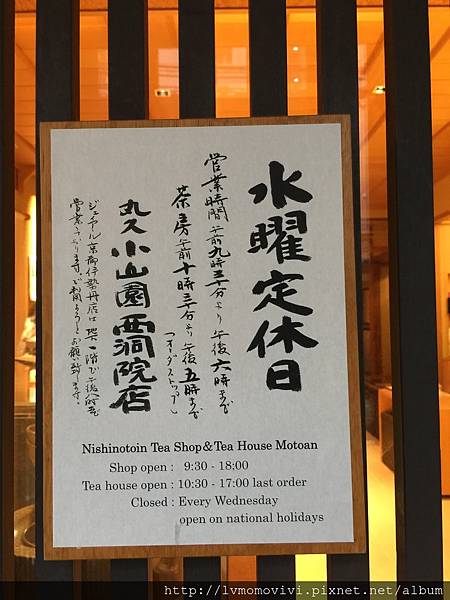 水曜定休日
営業時間 午前九時三十分より午後六時まで
茶房午前十時三十分より午後五時まで
(オーダーストップ)
丸久小山園 西洞院店
ジェイアール京都伊勢丹店は地下一階で午後八時迄
営業しております。ご利用よろしくお願い致します。
Nishinotoin Tea Shop & Tea House Motoan
Shop open : 9:30 - 18:00
Tea house open : 10:30 - 17:00 last order
Closed : Every Wednesday
open on national holidays
http://lvmomovivi.pixnet.net/album